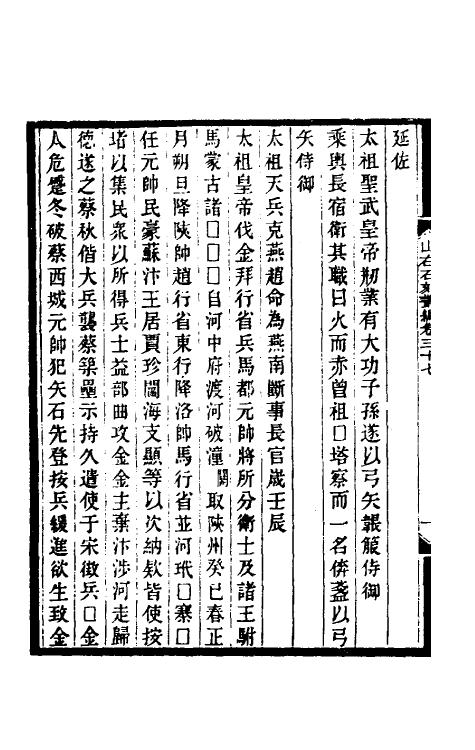 延佐
太祖聖武皇帝剏業有大功子孫遂以弓矢櫜籠侍御
乘輿長宿衛其職曰火而赤曾祖□塔察而一名倴盞以弓
矢侍御
太祖天兵克燕趙命為燕南斷事長官歲壬辰
太祖皇帝伐金拜行省兵馬都元帥將所分衛士及諸王駙
馬蒙古諸□□□自河中府渡河破潼關取陝州癸巳春正
月朔旦降陝帥趙行省東行降洛帥馬行省並河玳□寨□
任元帥民豪蘇汴王居賈珍闖海支顯等以次納欵皆使按
堵以集民衆以所得兵士益部曲攻金金主棄汴涉河走歸
德遂之蔡秋偕大兵襲蔡築壘示持久遣使于宋徵兵□金
人危蹙冬破蔡西城元帥犯矢石先登按兵緩進欲生致金
山右石刻叢編卷三十七
一